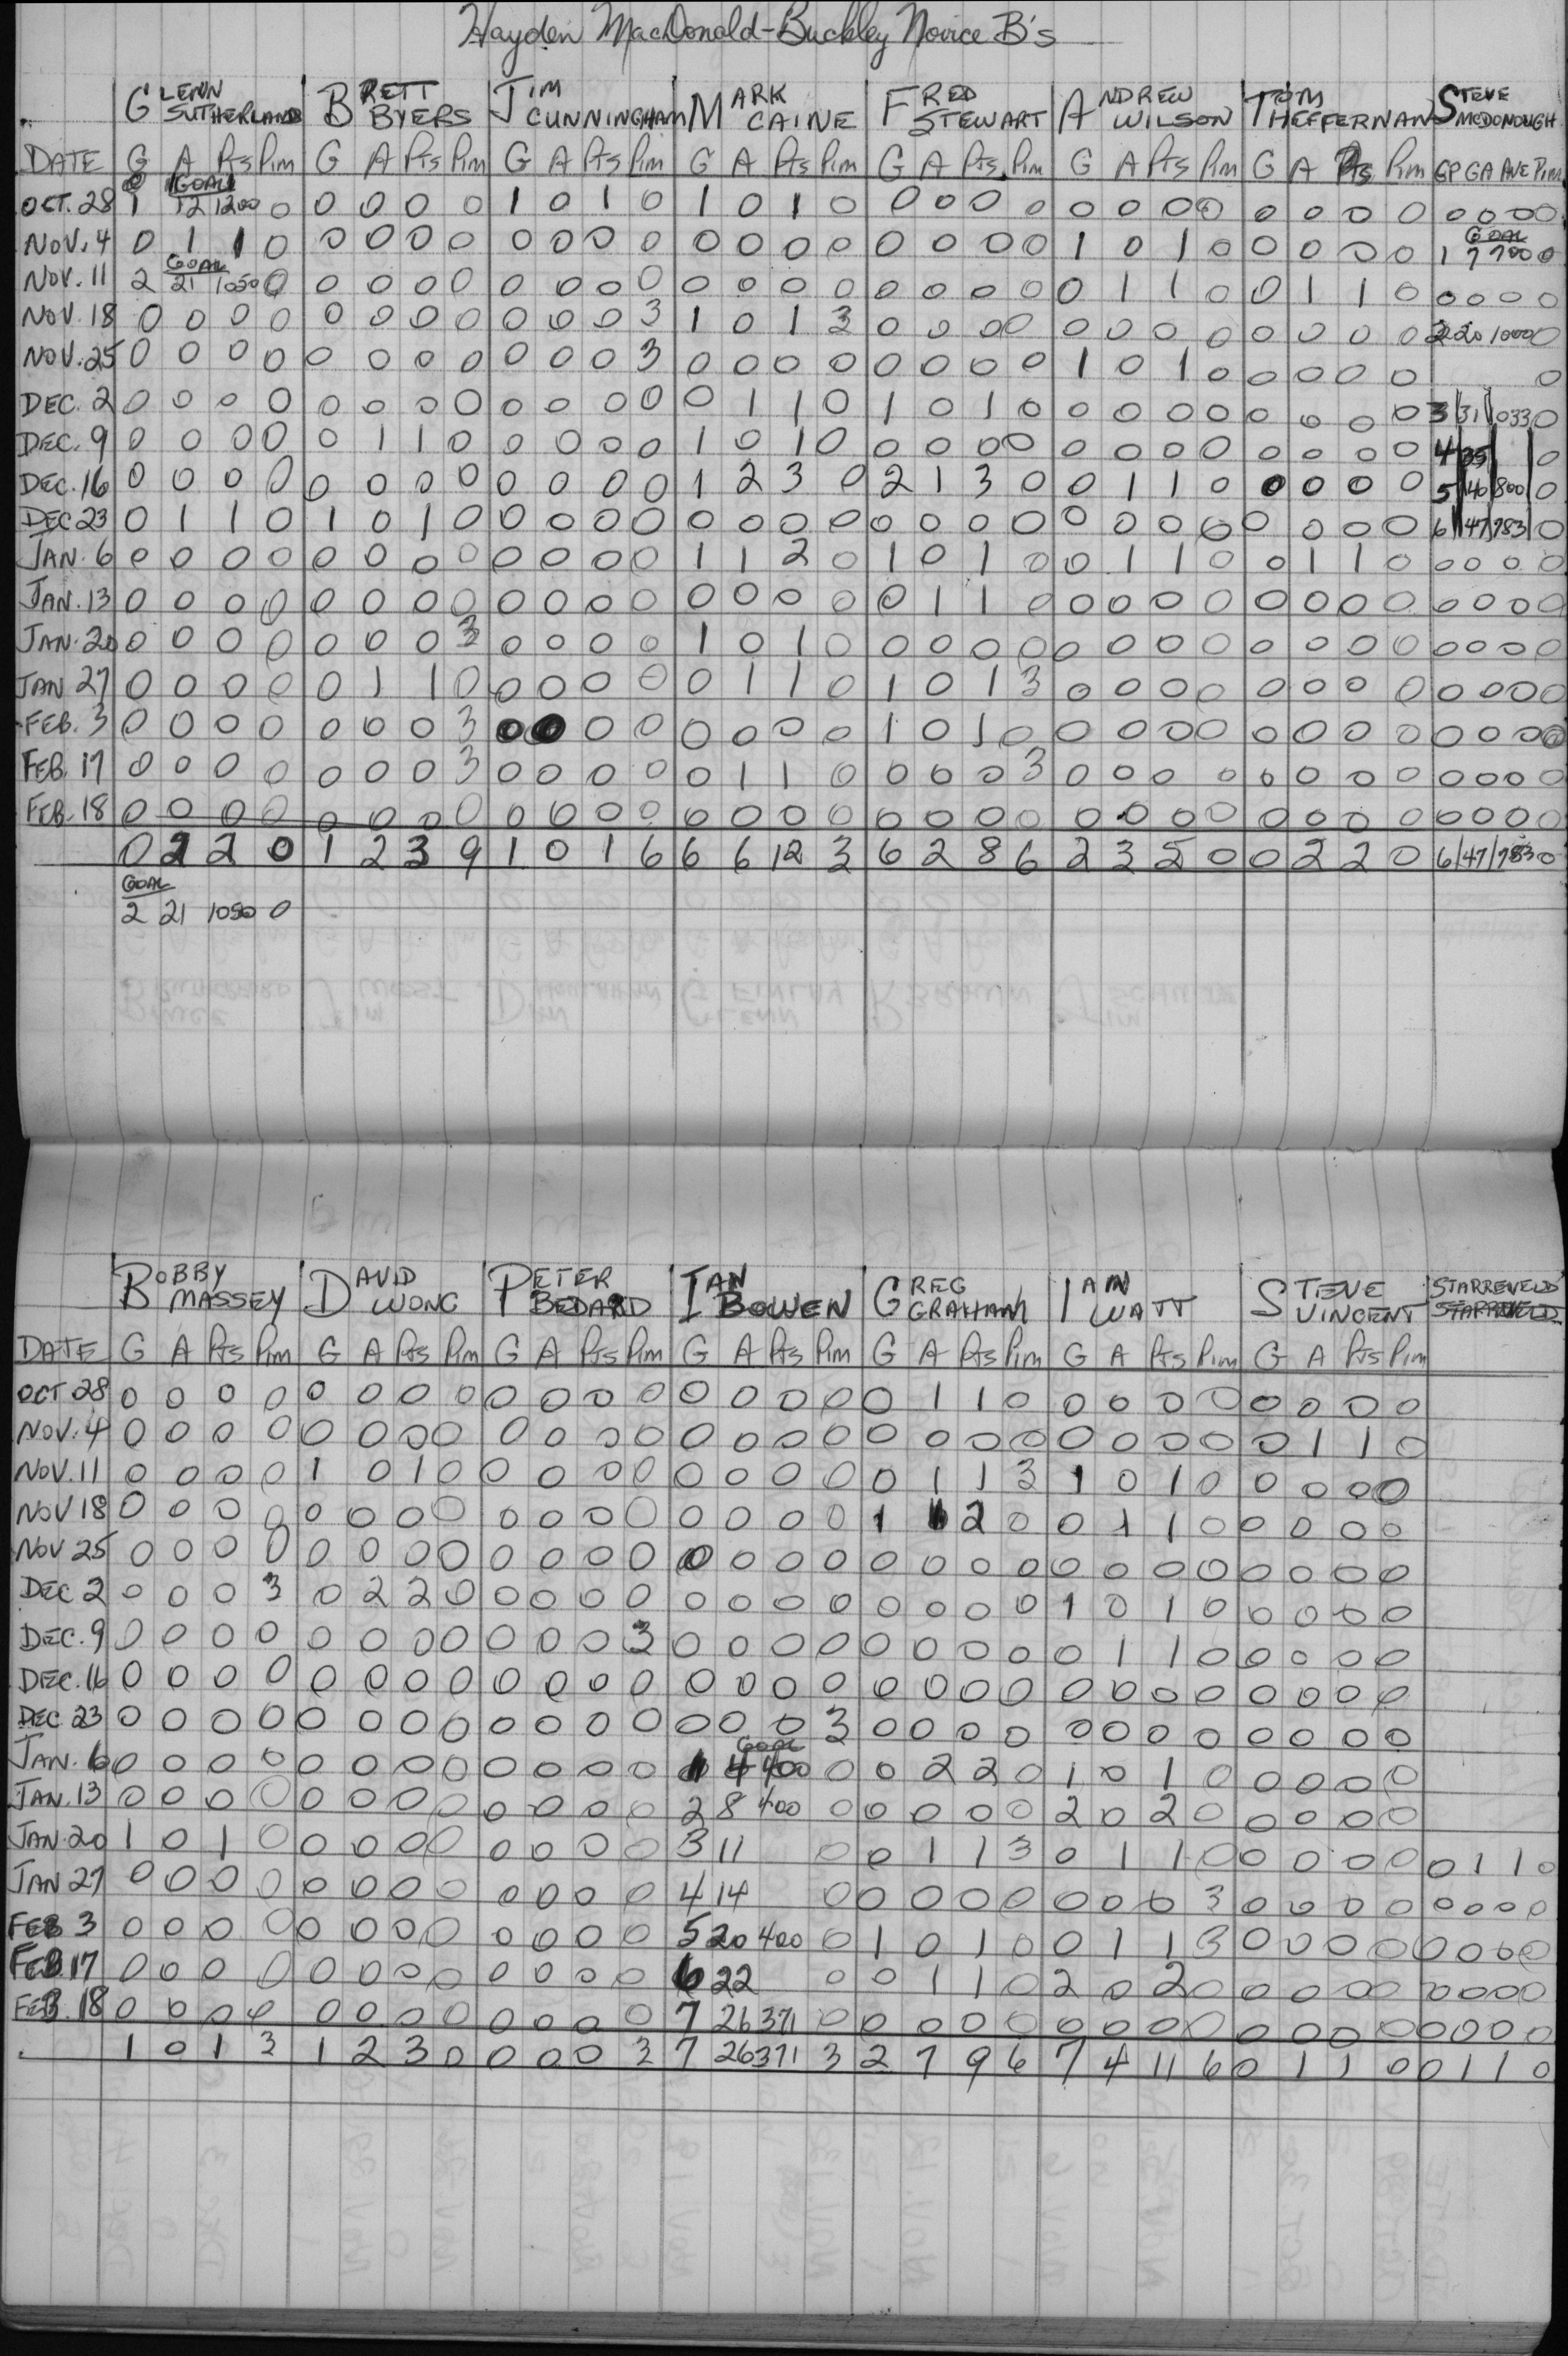 Hayden MacDonald-Buckley Novice B's
GLENN SUTHERLAND BRETT BYERS JIM CUNNINGHAM MARK CAINE FRED STEWART ANDREW WILSON TOM HEFFERNAN STEVE MCDONOUGH
DATE G A Pts Pim G A Pts Pim G A Pts Pim G A Pts Pim G A Pts Pim G A Pts Pim G A Pts Pim GP GA AVE Pim
GOAL
OCT. 28 1 12 1200 0 0 0 0 0 1 0 1 0 1 0 1 0 0 0 0 0 0 0 0 0 0 0 0 0 0 0 0 0
GOAL
NOV. 4 0 1 1 0 0 0 0 0 0 0 0 0 0 0 0 0 0 0 0 0 1 0 1 0 0 0 0 0 1 7 700 0
GOAL
NOV. 11 2 21 1050 0 0 0 0 0 0 0 0 0 0 0 0 0 0 0 0 0 0 1 1 0 0 1 1 0 0 0 0 0
NOV. 18 0 0 0 0 0 0 0 0 0 0 0 3 1 0 1 3 0 0 0 0 0 0 0 0 0 0 0 0 2 20 1000 0
NOV. 25 0 0 0 0 0 0 0 0 0 0 0 3 0 0 0 0 0 0 0 0 1 0 1 0 0 0 0 0 0
DEC. 2 0 0 0 0 0 0 0 0 0 0 0 0 0 1 1 0 1 0 1 0 0 0 0 0 0 0 0 0 3 31 1033 0
DEC. 9 0 0 0 0 0 1 1 0 0 0 0 0 1 0 1 0 0 0 0 0 0 0 0 0 0 0 0 0 4 35 0
DEC. 16 0 0 0 0 0 0 0 0 0 0 0 0 1 2 3 0 2 1 3 0 0 1 1 0 0 0 0 0 5 40 800 0
DEC 23 0 1 1 0 1 0 1 0 0 0 0 0 0 0 0 0 0 0 0 0 0 0 0 0 0 0 0 0 6 47 783 0
JAN. 6 0 0 0 0 0 0 0 0 0 0 0 0 1 1 2 0 1 0 1 0 0 1 1 0 0 1 1 0 0 0 0 0
JAN. 13 0 0 0 0 0 0 0 0 0 0 0 0 0 0 0 0 0 1 1 0 0 0 0 0 0 0 0 0 0 0 0 0
JAN. 20 0 0 0 0 0 0 0 3 0 0 0 0 1 0 1 0 0 0 0 0 0 0 0 0 0 0 0 0 0 0 0 0
JAN 27 0 0 0 0 0 1 1 0 0 0 0 0 0 1 1 0 1 0 1 3 0 0 0 0 0 0 0 0 0 0 0 0
FEB. 3 0 0 0 0 0 0 0 3 0 0 0 0 0 0 0 0 1 0 1 0 0 0 0 0 0 0 0 0 0 0 0 0
FEB. 17 0 0 0 0 0 0 0 3 0 0 0 0 0 1 1 0 0 0 0 3 0 0 0 0 0 0 0 0 0 0 0 0
FEB. 18 0 0 0 0 0 0 0 0 0 0 0 0 0 0 0 0 0 0 0 0 0 0 0 0 0 0 0 0 0 0 0 0
0 2 2 0 1 2 3 9 1 0 1 6 6 6 12 3 6 2 8 6 2 3 5 0 0 2 2 0 6 47 783 0
GOAL
2 21 1050 0
BOBBY MASSEY DAVID WONG PETER BEDARD IAN BOWEN GREG GRAHAM IAIN WATT STEVE VINCENT STARREVELD STARREVELD
DATE G A Pts Pim G A Pts Pim G A Pts Pim G A Pts Pim G A Pts Pim G A Pts Pim G A Pts Pim
OCT 28 0 0 0 0 0 0 0 0 0 0 0 0 0 0 0 0 0 1 1 0 0 0 0 0 0 0 0 0
NOV. 4 0 0 0 0 0 0 0 0 0 0 0 0 0 0 0 0 0 0 0 0 0 0 0 0 0 1 1 0
NOV. 11 0 0 0 0 1 0 1 0 0 0 0 0 0 0 0 0 0 1 1 3 1 0 1 0 0 0 0 0
NOV 18 0 0 0 0 0 0 0 0 0 0 0 0 0 0 0 0 1 1 2 0 0 1 1 0 0 0 0 0
NOV 25 0 0 0 0 0 0 0 0 0 0 0 0 0 0 0 0 0 0 0 0 0 0 0 0 0 0 0 0
DEC 2 0 0 0 3 0 2 2 0 0 0 0 0 0 0 0 0 0 0 0 0 1 0 1 0 0 0 0 0
DEC. 9 0 0 0 0 0 0 0 0 0 0 0 3 0 0 0 0 0 0 0 0 0 1 1 0 0 0 0 0
DEC. 16 0 0 0 0 0 0 0 0 0 0 0 0 0 0 0 0 0 0 0 0 0 0 0 0 0 0 0 0
DEC 23 0 0 0 0 0 0 0 0 0 0 0 0 0 0 0 3 0 0 0 0 0 0 0 0 0 0 0 0
GOAL
JAN. 6 0 0 0 0 0 0 0 0 0 0 0 0 1 4 400 0 0 2 2 0 1 0 1 0 0 0 0 0
JAN. 13 0 0 0 0 0 0 0 0 0 0 0 0 2 8 400 0 0 0 0 0 2 0 2 0 0 0 0 0
JAN. 20 1 0 1 0 0 0 0 0 0 0 0 0 3 11 0 0 1 1 3 0 1 1 0 0 0 0 0 0 1 1 0
JAN 27 0 0 0 0 0 0 0 0 0 0 0 0 4 14 0 0 0 0 0 0 0 0 3 0 0 0 0 0 0 0 0
FEB 3 0 0 0 0 0 0 0 0 0 0 0 0 5 20 400 0 1 0 1 0 0 1 1 3 0 0 0 0 0 0 0 0
FEB. 17 0 0 0 0 0 0 0 0 0 0 0 0 6 22 0 0 1 1 0 2 0 2 0 0 0 0 0 0 0 0 0
FEB. 18 0 0 0 0 0 0 0 0 0 0 0 0 7 26 371 0 0 0 0 0 0 0 0 0 0 0 0 0 0 0 0 0
1 0 1 3 1 2 3 0 0 0 0 3 7 26 371 3 2 7 9 6 7 4 11 6 0 1 1 0 0 1 1 0